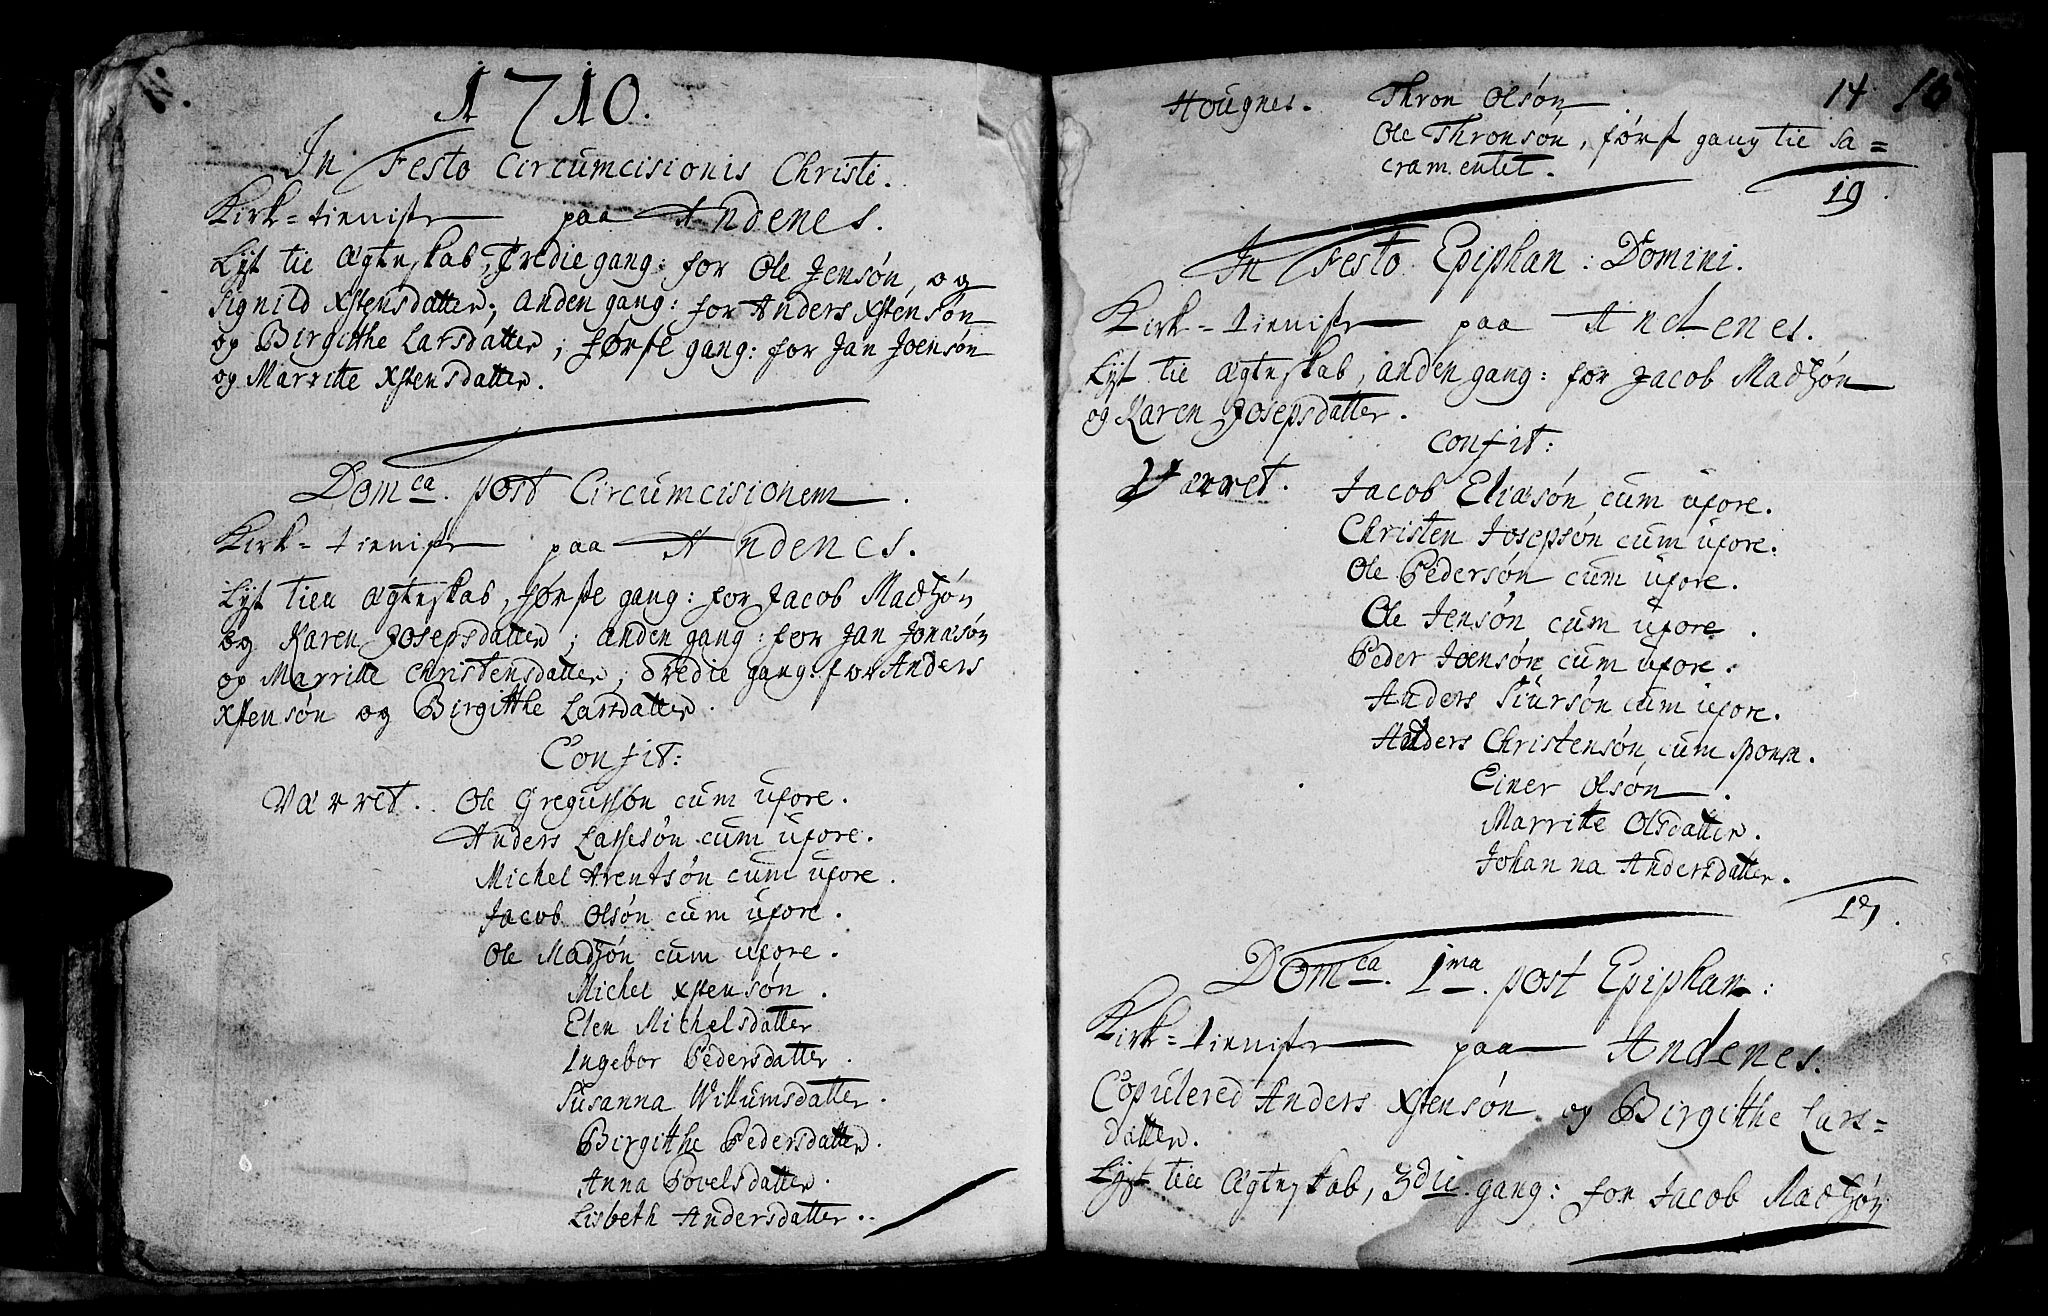 1710.
In Festo Circumcisionis Christi.
Kirk=tieniste paa Andenes.
Lyst til Ægteskab, Tredie gang: for Ole Jensøn, og
Signild Xstensdatter; anden gang: for Anders Xstensøn
og Birgitthe Larsdatter; første gang: for Jan Joensøn
og Marritte Xstensdatter.
Dom^ca. post Circumcisionem.
Kirk=tieniste paa Andenes.
Lyst till Ægteskab, første gang: for Jacob Madtzøn
og Karen Josepsdatter; anden gang: for Jan Jonæsøn
og Marritte Christensdatter; Tredie gang: for Anders
Xstensøn og Birgitthe Larsdatter.
Confit:
Værret. Ole Gregussøn cum uxore.
Anders Lassesøn cum uxore.
Michel Arentsøn cum uxore.
Jacob Olsøn cum uxore.
Ole Madtzøn cum uxore.
Michel Xstensøn.
Elen Michelsdatter
Ingebor Pedersdatter.
Susanna Willumsdatter.
Birgitthe Pedersdatter.
Anna Povelsdatter.
Lisbeth Andersdatter.
14
Hougnes. Thron Olsøn.
Ole Thronsøn, først gang til Sa=
cramentet.
19.
In Festo Epiphan: Domini.
Kirk=tieniste paa Andenes.
Lyst til Ægteskab, anden gang: for Jacob Madtzøn
og Karen Josepsdatter.
Confit:
Værret. Jacob Eliæsøn cum uxore.
Christen Josepsøn cum uxore.
Ole Pedersøn cum uxore.
Ole Jensøn cum uxore.
Peder Joensøn cum uxore.
Anders Siursøn cum uxore.
Anders Christensøn cum sponsa.
Einer Olsøn.
Marritte Olsdatter.
Johanna Andersdatter.
17.
Dom^ca. 1^ma. post Epiphan:
Kirk=tieniste paa Andenes.
Copulered Anders Xstensøn og Birgitthe Lars=
datter.
Lyst till Ægteskab, 3die gang: for Jacob Madtzøn